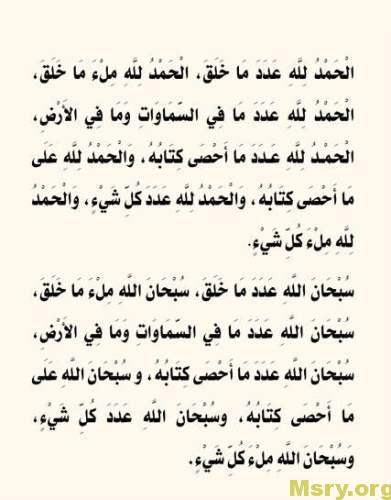 الْحَمْدُ لِلَّهِ عَدَدَ مَا خَلَقَ، الْحَمْدُ لِلَّهِ مِلْءَ مَا خَلَقَ،
الْحَمْدُ لِلَّهِ عَدَدَ مَا فِي السَّمَاوَات وَمَا فِي الأَرْضِ،
الْحَمْدُ لِلَّهِ عَدَدَ مَا أَحْصَى كِتَابُهُ، وَالْحَمْدُ لِلَّهِ عَلَى
مَا أَحْصَى كِتَابُهُ، وَالْحَمْدُ لِلَّهِ عَدَدَ كُلِّ شَيْءٍ، وَالْحَمْدُ
لِلَّهِ مِلْءَ كُلِّ شَيْءٍ.
سُبْحَانَ اللَّهِ عَدَدَ مَا خَلَقَ، سُبْحَانَ اللَّهِ مِلْءَ مَا خَلَقَ،
سُبْحَانَ اللَّهِ عَدَدَ مَا فِي السَّمَاوَاتِ وَمَا فِي الأَرْضِ،
سُبْحَانَ اللَّهِ عَدَدَ مَا أَحْصَى كِتَابُهُ، و سُبْحَانَ اللَّهِ عَلَى
مَا أَحْصَى كِتَابُهُ، وسُبْحَانَ اللَّهِ عَدَدَ كُلِّ شَيْءٍ،
وَسُبْحَانَ اللَّهِ مِلْءَ كُلِّ شَيْءٍ.
Msry.org